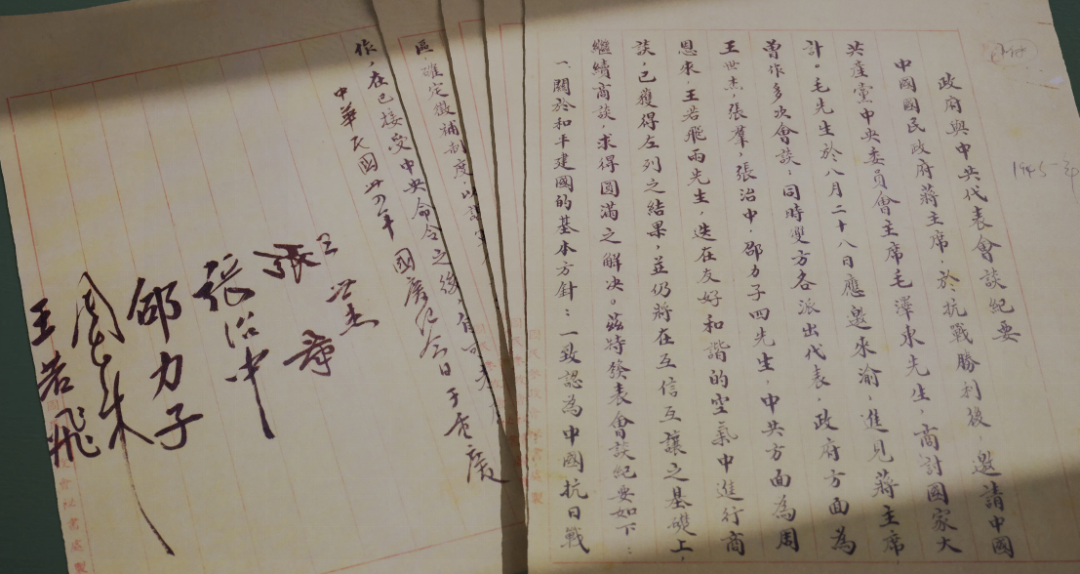 政府與中共代表會談紀要
中國國民政府蔣主席，於抗戰勝利後，邀請中國
共產黨中央委員會主席毛澤東先生，商討國家大
計。毛先生於八月二十八日應邀來渝，進見蔣主席
曾作多次會談，同時雙方各派出代表，政府方面為
王世杰，張羣，張治中，邵力子四先生，中共方面為周
恩來，王若飛兩先生，迭在友好和諧的空氣中進行商
談，已獲得左列之結果，並仍將在互信互讓之基礎上，
繼續商談，求得圓滿之解決。茲特發表會談紀要如下：
一關於和平建國的基本方針：一致認為中國抗日戰
1945
區，確定徵補制度，以
作，在已接受中央命令之後，自可
中華民國卅四年國慶紀念日于重慶
王世杰
張羣
張治中
邵力子
周恩來
王若飛